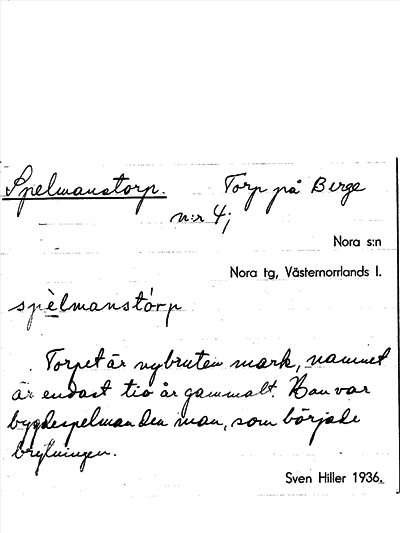 Spelmanstorp. Torp på Berge
n:r 4;
Nora s:n
Nora tg, Västernorrlands l.
spèlmanstórp
Torpet är nybruten mark, namnet
är endast tio år gammalt. Han var
bygdespelman den man, som började
brytningen.
Sven Hiller 1936.